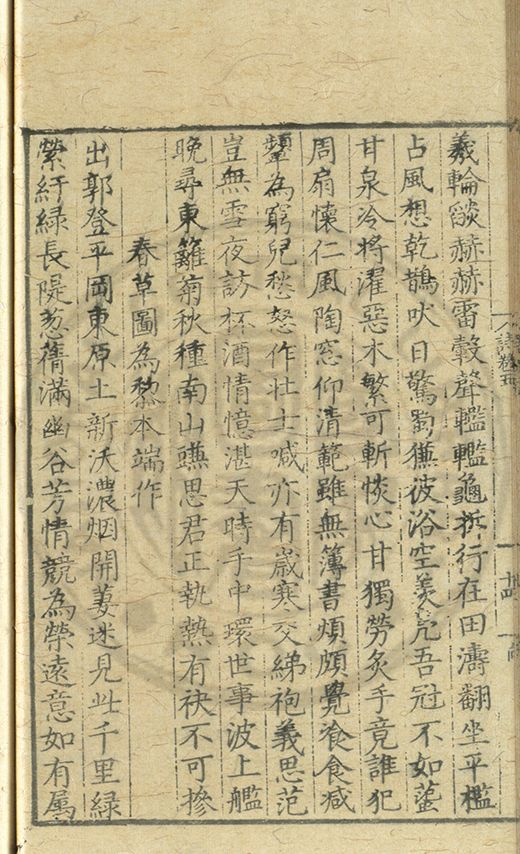 羲輪燄赫赫雷轂聲轞轞龜拆行在田濤翻坐平檻
占風想乾鵲吠日驚蜀獫波浴空羨鳧吾冠不如䇺
甘泉冷將濯惡木繁可斬恢心甘獨勞炙手竟誰犯
周扇懷仁風陶窓仰清範雖無簿書煩頗覺飡食減
顰為窮兒愁怒作壯士喊亦有歲寒交綈袍義思范
豈無雪夜訪杯酒情憶湛天時手中環世事波上艦
晚尋東籬菊秋種南山䜴思君正執熱有袂不可摻
春草圖為黎本端作
出郭登平岡東原土新沃濃烟開萋迷見此千里綠
縈紆綠長隄蔥蒨滿幽谷芳情競為榮遠意如有屬